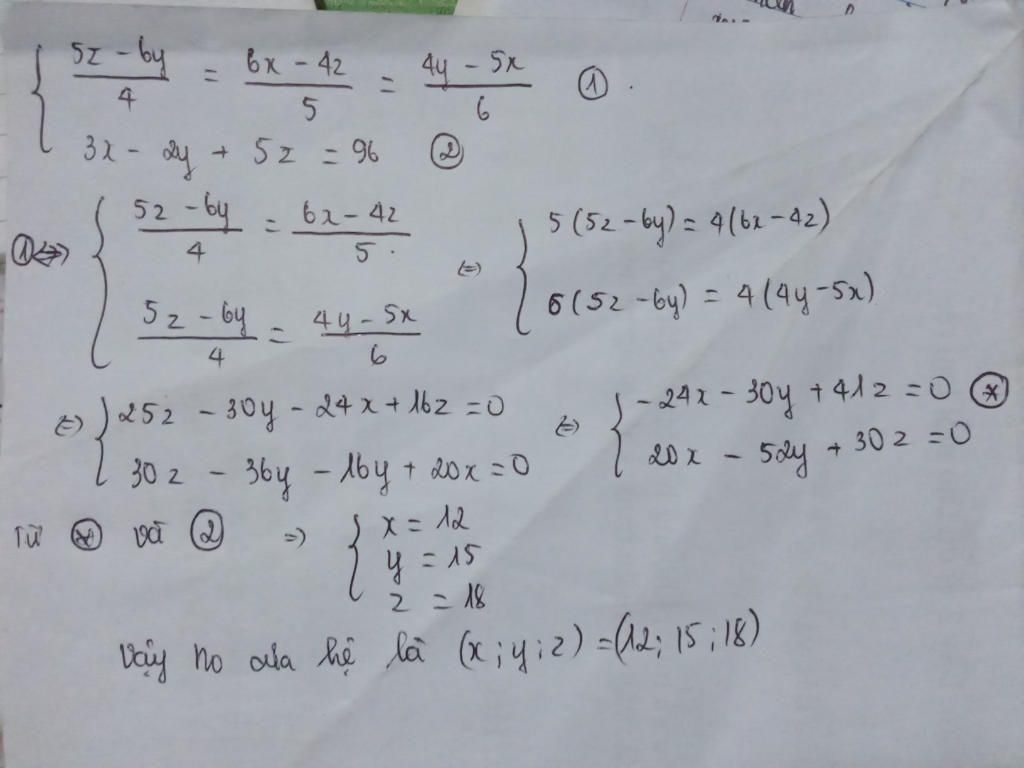 { (5z - 6y)/4 = (6x - 4z)/5 = (4y - 5x)/6 ① .
3x - 2y + 5z = 96 ②
① ⇔ { (5z - 6y)/4 = (6x - 4z)/5 ⇔ { 5(5z - 6y) = 4(6x - 4z)
(5z - 6y)/4 = (4y - 5x)/6 6(5z - 6y) = 4(4y - 5x)
⇔ { 25z - 30y - 24x + 16z = 0 ⇔ { -24x - 30y + 41z = 0 (*)
30z - 36y - 16y + 20x = 0 20x - 52y + 30z = 0
Từ (*) và ② ⇒ { x = 12
y = 15
z = 18
Vậy no của hệ là (x; y; z) = (12; 15; 18)